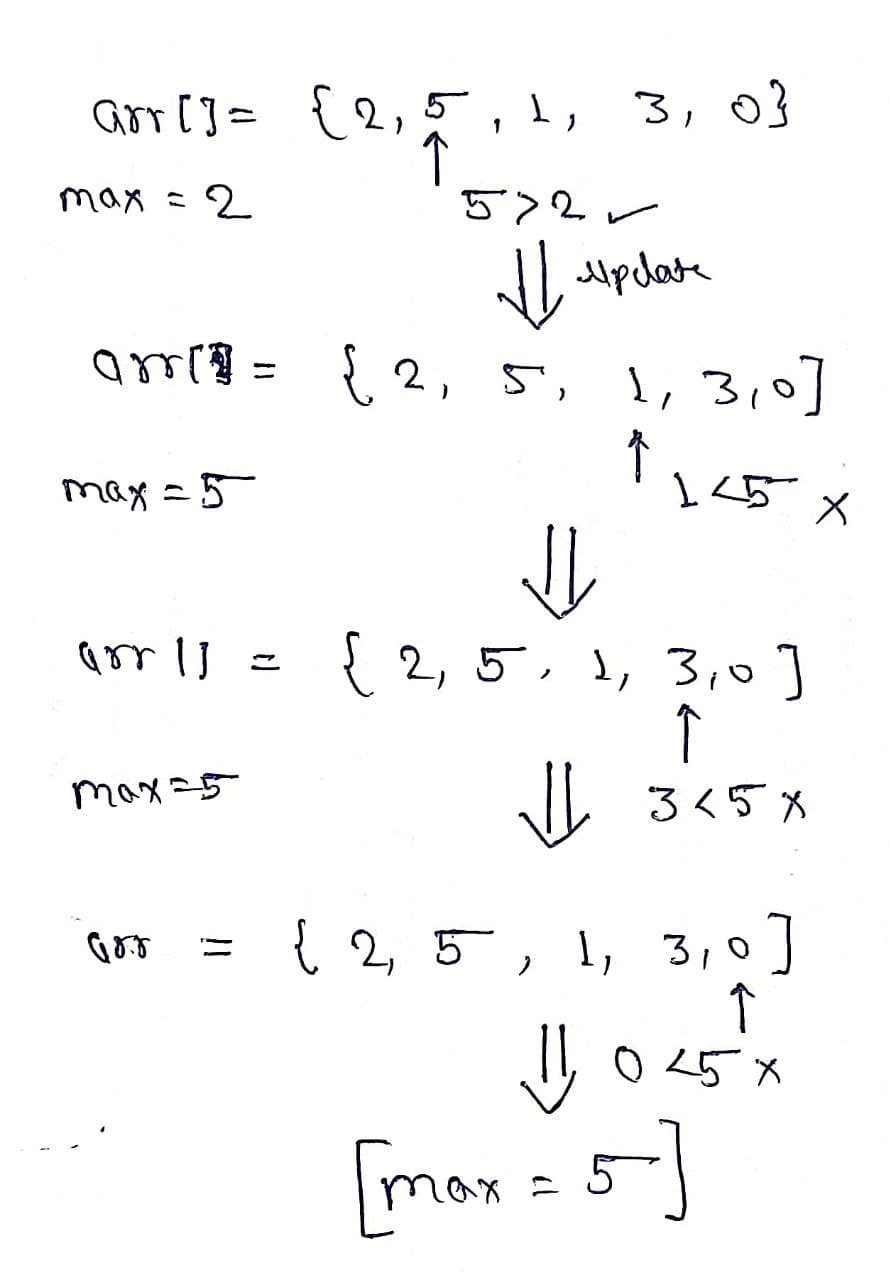 arr[]= {2, 5, 1, 3, 0}
↑
max = 2 5>2 ✓
⇓ Update
arr[] = {2, 5, 1, 3,0]
↑
max = 5 1<5 x
⇓
arr [] = {2, 5, 1, 3,0]
↑
max=5 ⇓ 3<5 x
arr = {2, 5, 1, 3,0]
↑
⇓ 0<5 x
[max = 5]